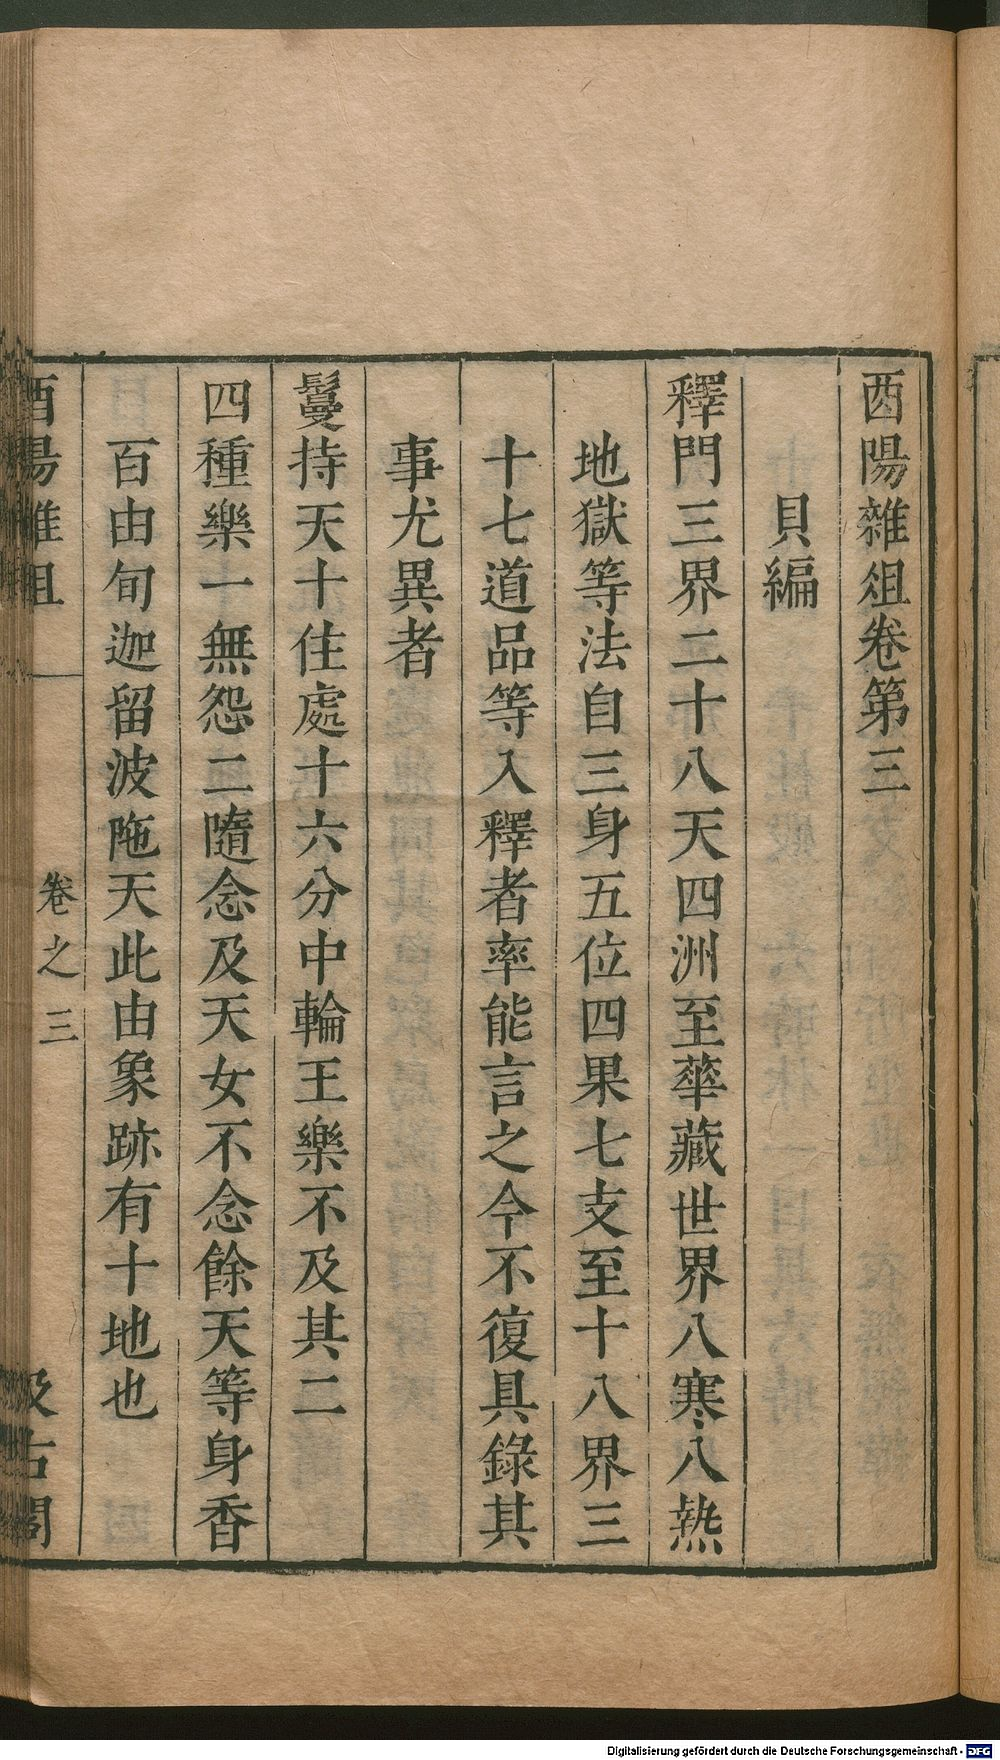 酉陽雜俎卷第三
貝編
釋門三界二十八天四洲至華藏世界八寒八熱
地獄等法自三身五位四果七支至十八界三
十七道品等入釋者率能言之今不復具錄其
事尤異者
鬘持天十住處十六分中輪王樂不及其二
四種樂一無怨二隨念及天女不念餘天等身香
百由旬迦留波陁天此由象跡有十地也
酉陽雜俎 卷之三 汲古閣
Digitalisierung gefördert durch die Deutsche Forschungsgemeinschaft - DFG